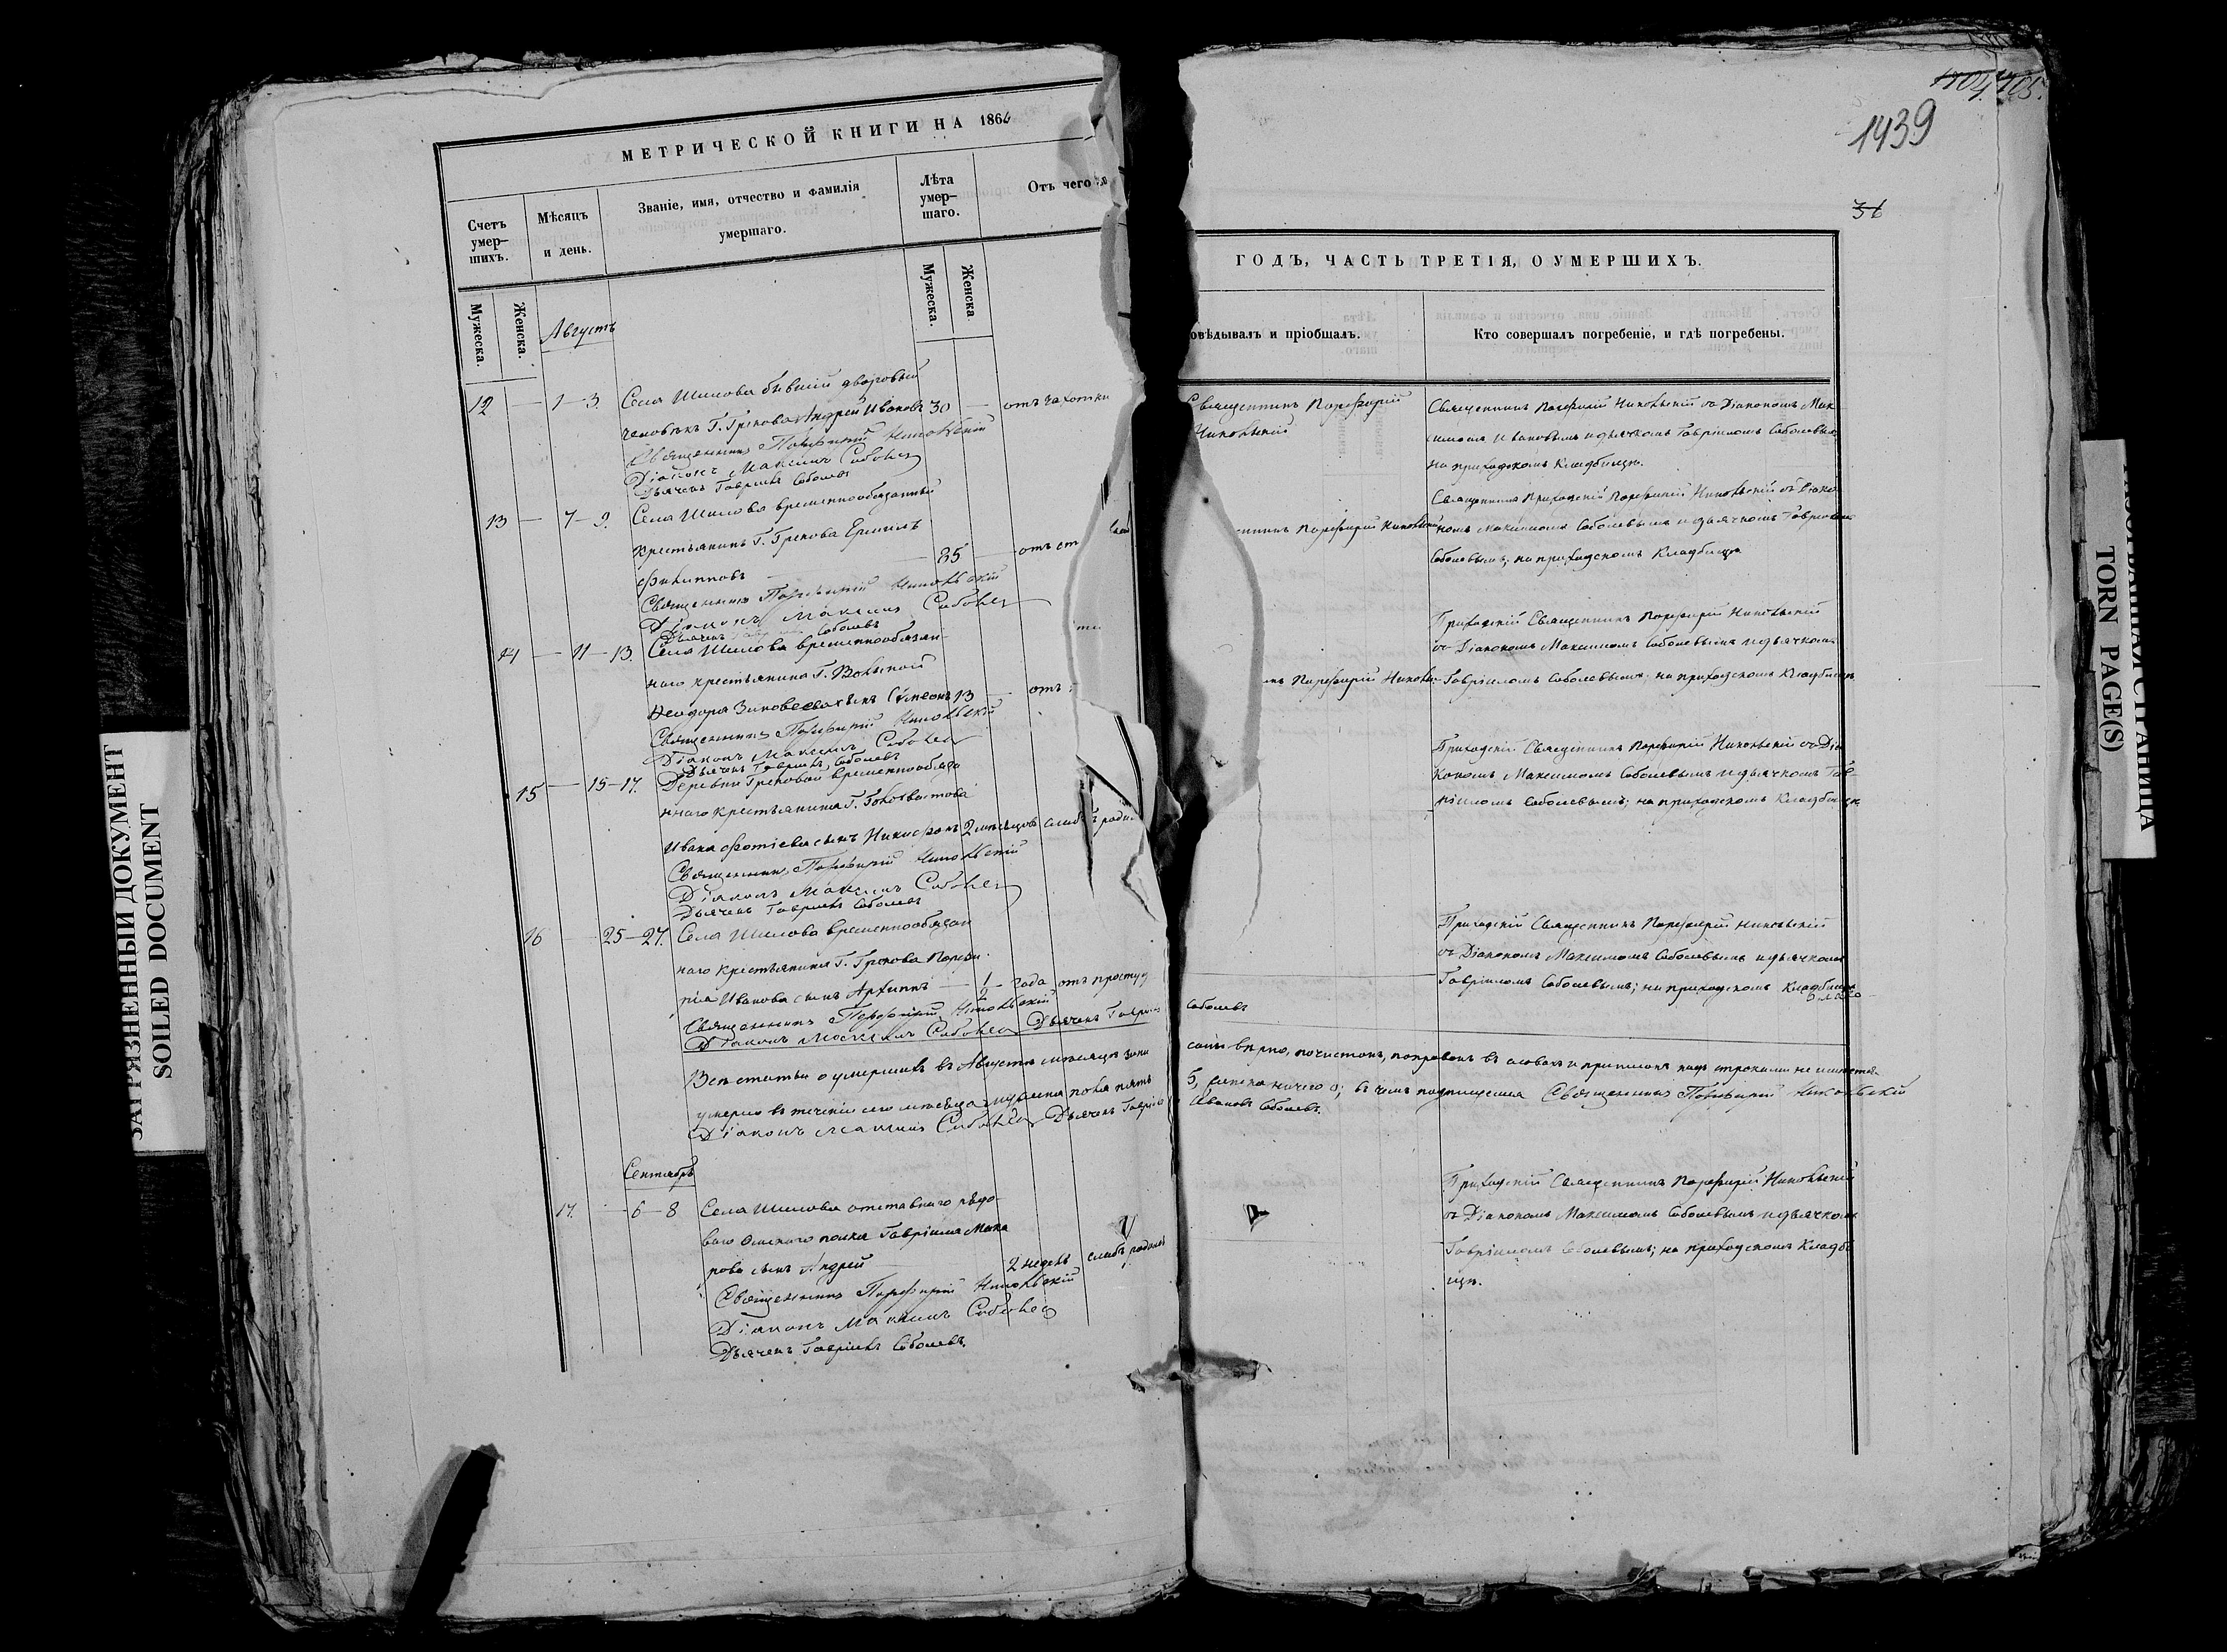 МЕТРИЧЕСКОЙ КНИГИ НА 1864
Счетъ умер-шихъ.
Мѣсяцъ и день.
Званіе, имя, отчество и фамилія умершаго.
Лѣта умер-шаго.
Отъ чего
Мужеска.
Женска.
Мужеска.
Женска
Августъ
12 — 1—3. Села Шилова бывшій дворовый
человѣкъ Г. Грекова Андрей Ивановъ 30 — отъ чахотки
Священникъ Порфирій Никольскій
Діаконъ Максимъ Соболев
Дьячекъ Гавріилъ Соболевъ
13 — 7—9. Села Шилова временнообязанный
крестьянинъ Г. Грекова Ермилъ
Филипповъ — 85 — отъ ст
Священникъ Порфирій Никольскій
Діаконъ Максимъ Соболев
Дьячекъ Соболевъ
14 — 11—13. Села Шилова временнообязан-
наго крестьянина Г.
Ѳеодора Зиновеева сынъ Сѵмеонъ 13 — отъ
Священникъ Порфирій Никольскій
Діаконъ Максимъ Соболев
Дьячекъ Гавріилъ Соболевъ
15 — 15—17. Деревни Грековой временнообяза
ннаго крестьянина Г. Голохвастова
Ивана Фотіева сынъ Никифоръ 2 мѣсяцовъ слабъ родил
Священникъ Порфирій Никольскій
Діаконъ Максимъ Соболев
Дьячекъ Гавріилъ Соболевъ
16 — 25—27. Села Шилова временнообязан
наго крестьянина Г. Грекова Порфи-
рія Иванова сынъ Архиппъ — 1/2 — года отъ простуд
Священникъ Порфирій Никольскій
Діаконъ Максимъ Соболев Дьячекъ Гавріилъ
Всѣ статьи о умершихъ въ Августѣ мѣсяцѣ запи
умерло въ теченіи сего мѣсяца мужеска пола пять
Діаконъ Максимъ Соболев Дьячекъ Гавріилъ
Сентябрь
17. — 6—8 Села Шилова отставнаго рядо-
ваго полка Гавріила Мака
рова сынъ Андрей — 2 недель слабъ родился
Священникъ Порфирій Никольскій
Діаконъ Максимъ Соболев
Дьячекъ Гавріилъ Соболевъ.
1439
36
ГОДЪ, ЧАСТЬ ТРЕТІЯ, О УМЕРШИХЪ.
овѣдывалъ и пріобщалъ.
Кто совершалъ погребеніе, и гдѣ погребены.
Священникъ Порфирій
Никольскій
Священникъ Порфирій Никольскій съ Діакономъ Мак-
симомъ Ивановымъ и дьячкомъ Гавріиломъ Соболевымъ
на приходскомъ Кладбищѣ.
нникъ Порфирій Никольскій
Священникъ Приходскій Порфирій Никольскій съ Діако
номъ Максимомъ Соболевымъ и дьячкомъ Гавріиломъ
Соболевымъ; на приходскомъ Кладбищѣ
икъ Порфирій Никольс-
Приходскій Священникъ Порфирій Никольскій
съ Діакономъ Максимомъ Соболевымъ и дьячкомъ
Гавріиломъ Соболевымъ; на приходскомъ Кладбищѣ
Приходскій Священникъ Порфирій Никольскій съ Діа
кономъ Максимомъ Соболевымъ и дьячкомъ Гав-
ріиломъ Соболевымъ; на приходскомъ Кладбищѣ
Приходскій Священникъ Порфирій Никольскій
съ Діакономъ Максимомъ Соболевымъ и дьячкомъ
Гавріиломъ Соболевымъ; на приходскомъ Кладбищѣ
Соболевъ
саны вѣрно, почистокъ, поправокъ въ словахъ и приписокъ надъ строками не имѣется
5, женска ничего 0; въ чемъ подпишемся Священникъ Порфирій Никольскій
Ивановъ Соболевъ.
Приходскій Священникъ Порфирій Никольскій
съ Діакономъ Максимомъ Соболевымъ и дьячкомъ
Гавріиломъ Соболевымъ; на приходскомъ Кладби
щѣ.
ЗАГРЯЗНЕННЫЙ ДОКУМЕНТ
SOILED DOCUMENT
СТРАНИЦА
TORN PAGE(S)